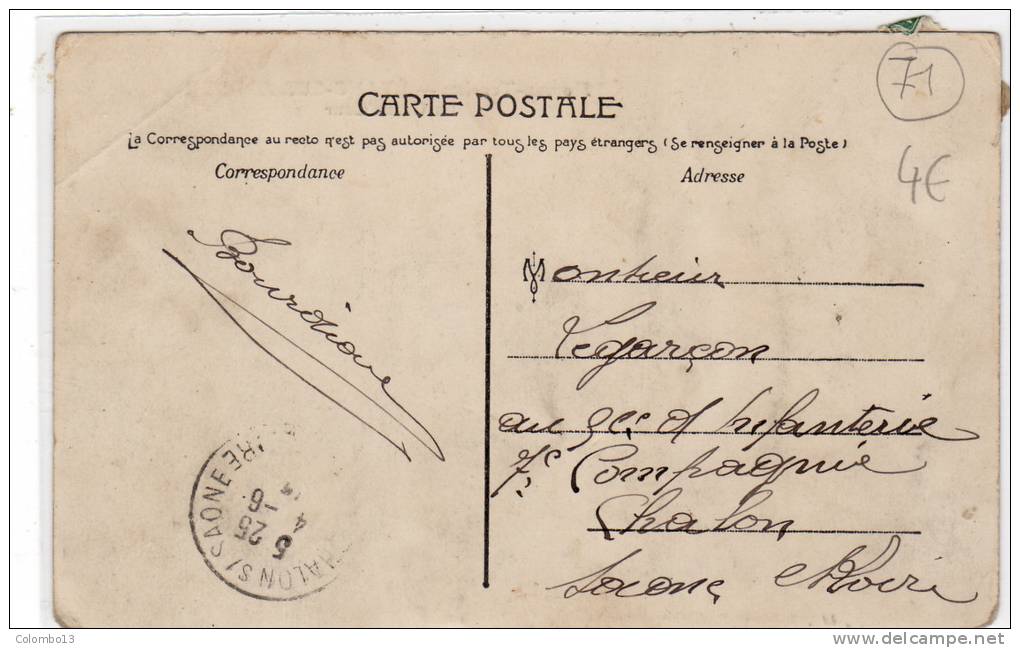 71
CARTE POSTALE
La Correspondance au recto n'est pas autorisée par tous les pays étrangers (Se renseigner à la Poste)
4€
Correspondance
Adresse
Monsieur
Legarçon
au d'Infanterie
7e Compagnie
Chalon
Saone Loire
CHALON S/ SAONE
5 25
4 -6
Colombo13
www.delcampe.net